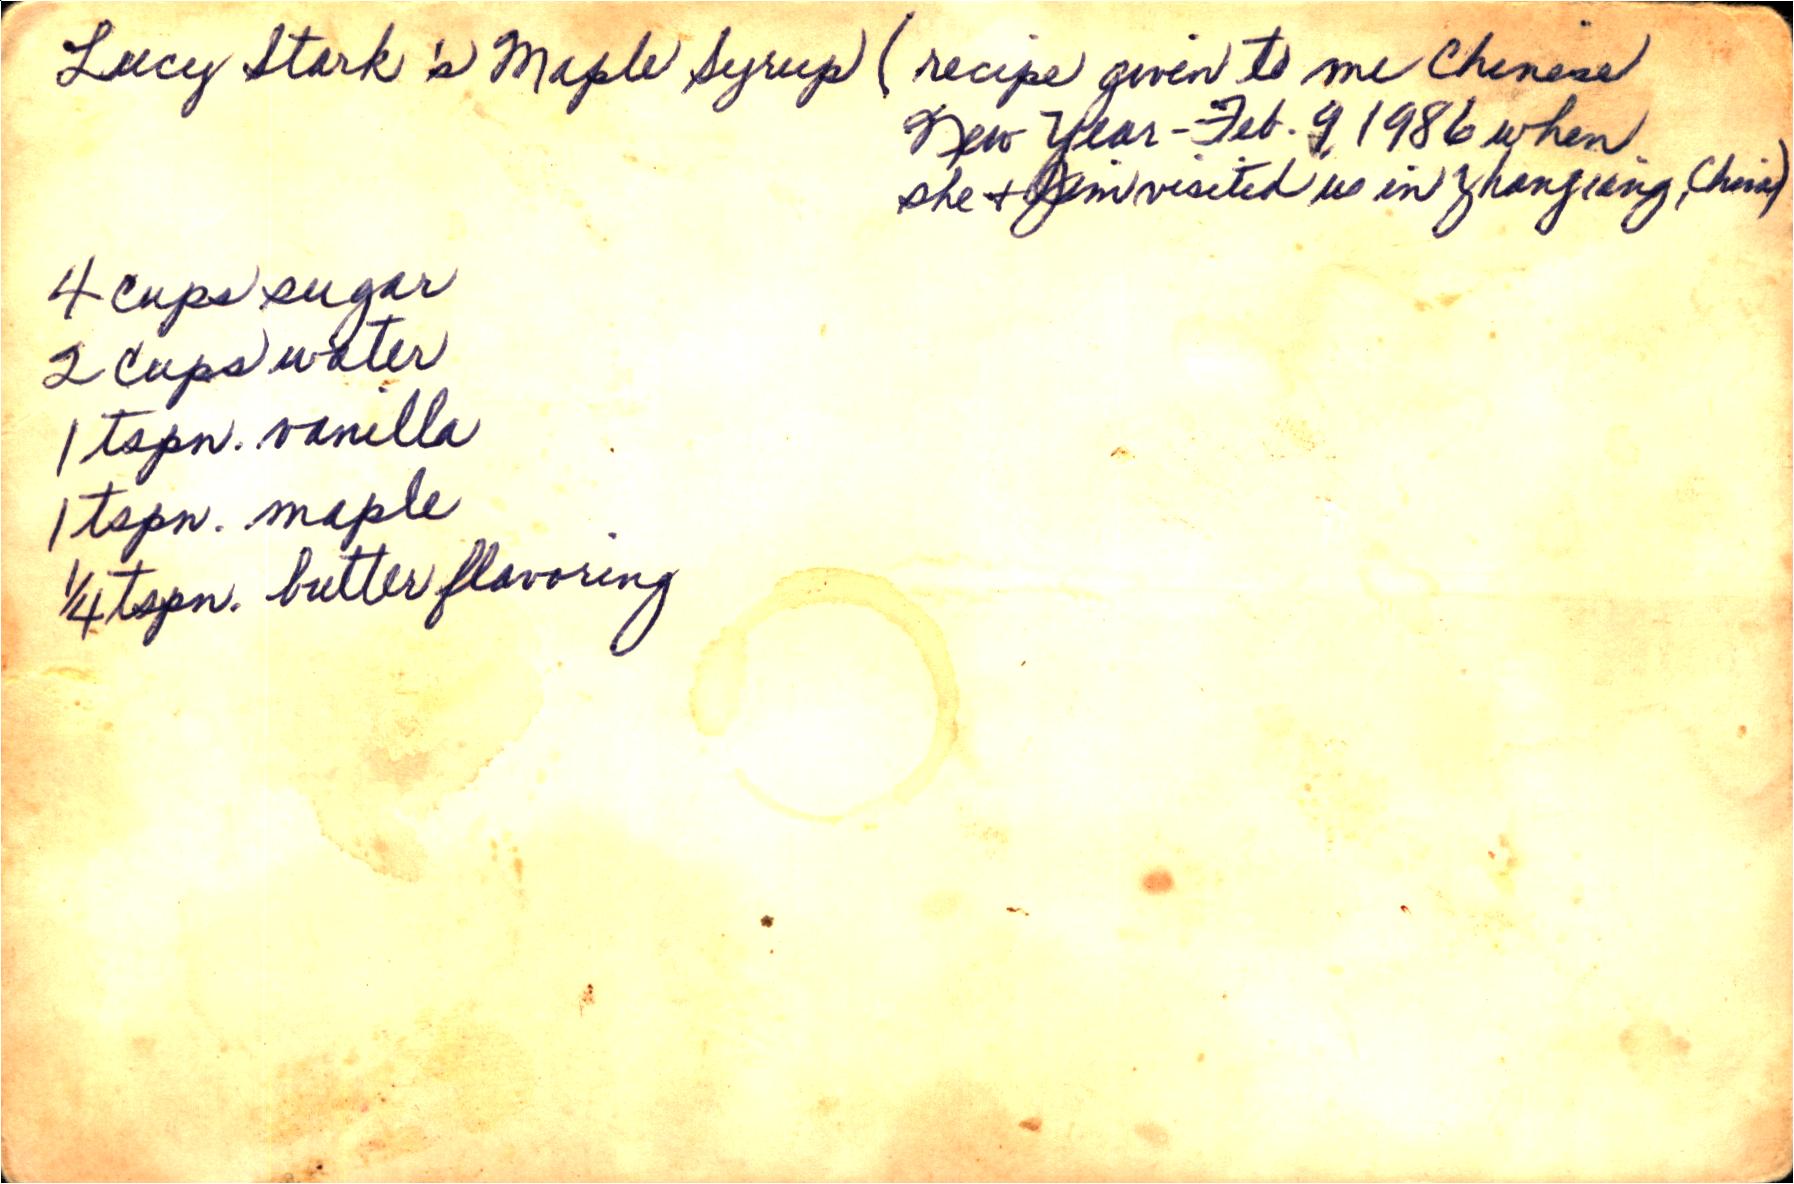 Lucy Stark's Maple Syrup (recipe given to me Chinese
New Year - Feb. 9, 1986 when
she + Jim visited us in Zhanjiang, China)
4 cups sugar
2 cups water
1 tspn. vanilla
1 tspn. maple
1/4 tspn. butter flavoring